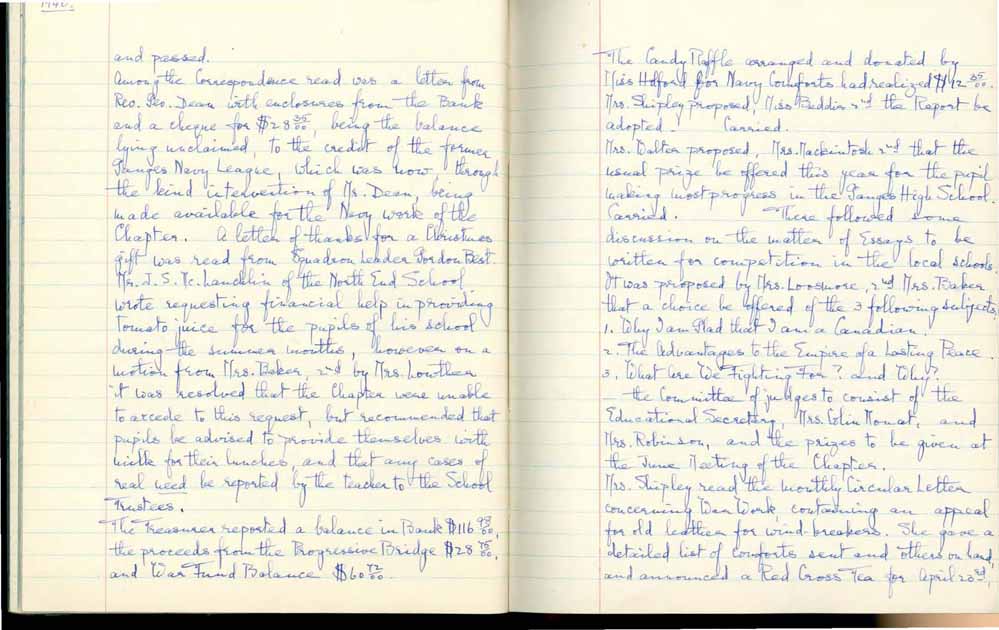 1940.
and passed.
Among the Correspondence read was a letter from
Rev. Geo. Dean with enclosures from the Bank
and a cheque for $28 35/00, being the balance
lying unclaimed, to the credit of the former
Ganges Navy League, which was now, through
the kind intervention of Mr. Dean, being
made available for the Navy work of the
Chapter. A letter of thanks for a Christmas
gift was read from Squadron Leader Gordon Best.
Mr. J. S. Mc. Lauchlin of the North End School
wrote requesting financial help in providing
tomato juice for the pupils of his school
during the summer months, however on a
motion from Mrs. Baker, 2nd by Mrs. Lowther
it was resolved that the Chapter were unable
to accede to this request, but recommended that
pupils be advised to provide themselves with
milk for their lunches, and that any cases of
real need be reported by the teacher to the School
Trustees.
The Treasurer reported a balance in Bank $116
the proceeds from the Progressive Bridge $28
and War Fund Balance $60 72/00.
The Candy Raffle arranged and donated by
Miss Holford for Navy Comforts had realized
Mrs. Shipley proposed, Miss Beddis 2nd the Report be
adopted. Carried.
Mrs. Walter proposed, Mrs. Mackintosh 2nd that the
usual prize be offered this year for the pupil
making most progress in the Ganges High School.
Carried. There followed some
discussion on the matter of Essays to be
written for competition in the local schools.
It was proposed by Mrs. Loosmore, 2nd Mrs. Baker
that a choice be offered of the 3 following subjects,
1. Why I am Glad that I am a Canadian.
2. The Advantages to the Empire of a Lasting Peace.
3. What Are We Fighting For? and Why?
— the Committee of judges to consist of the
Educational Secretary, Mrs. Colin Mouat, and
Mrs. Robinson, and the prizes to be given at
the June Meeting of the Chapter.
Mrs. Shipley read the monthly Circular Letter
concerning War Work, containing an appeal
for old leather for wind-breakers. She gave a
detailed list of comforts sent and others on hand,
and announced a Red Cross Tea for April